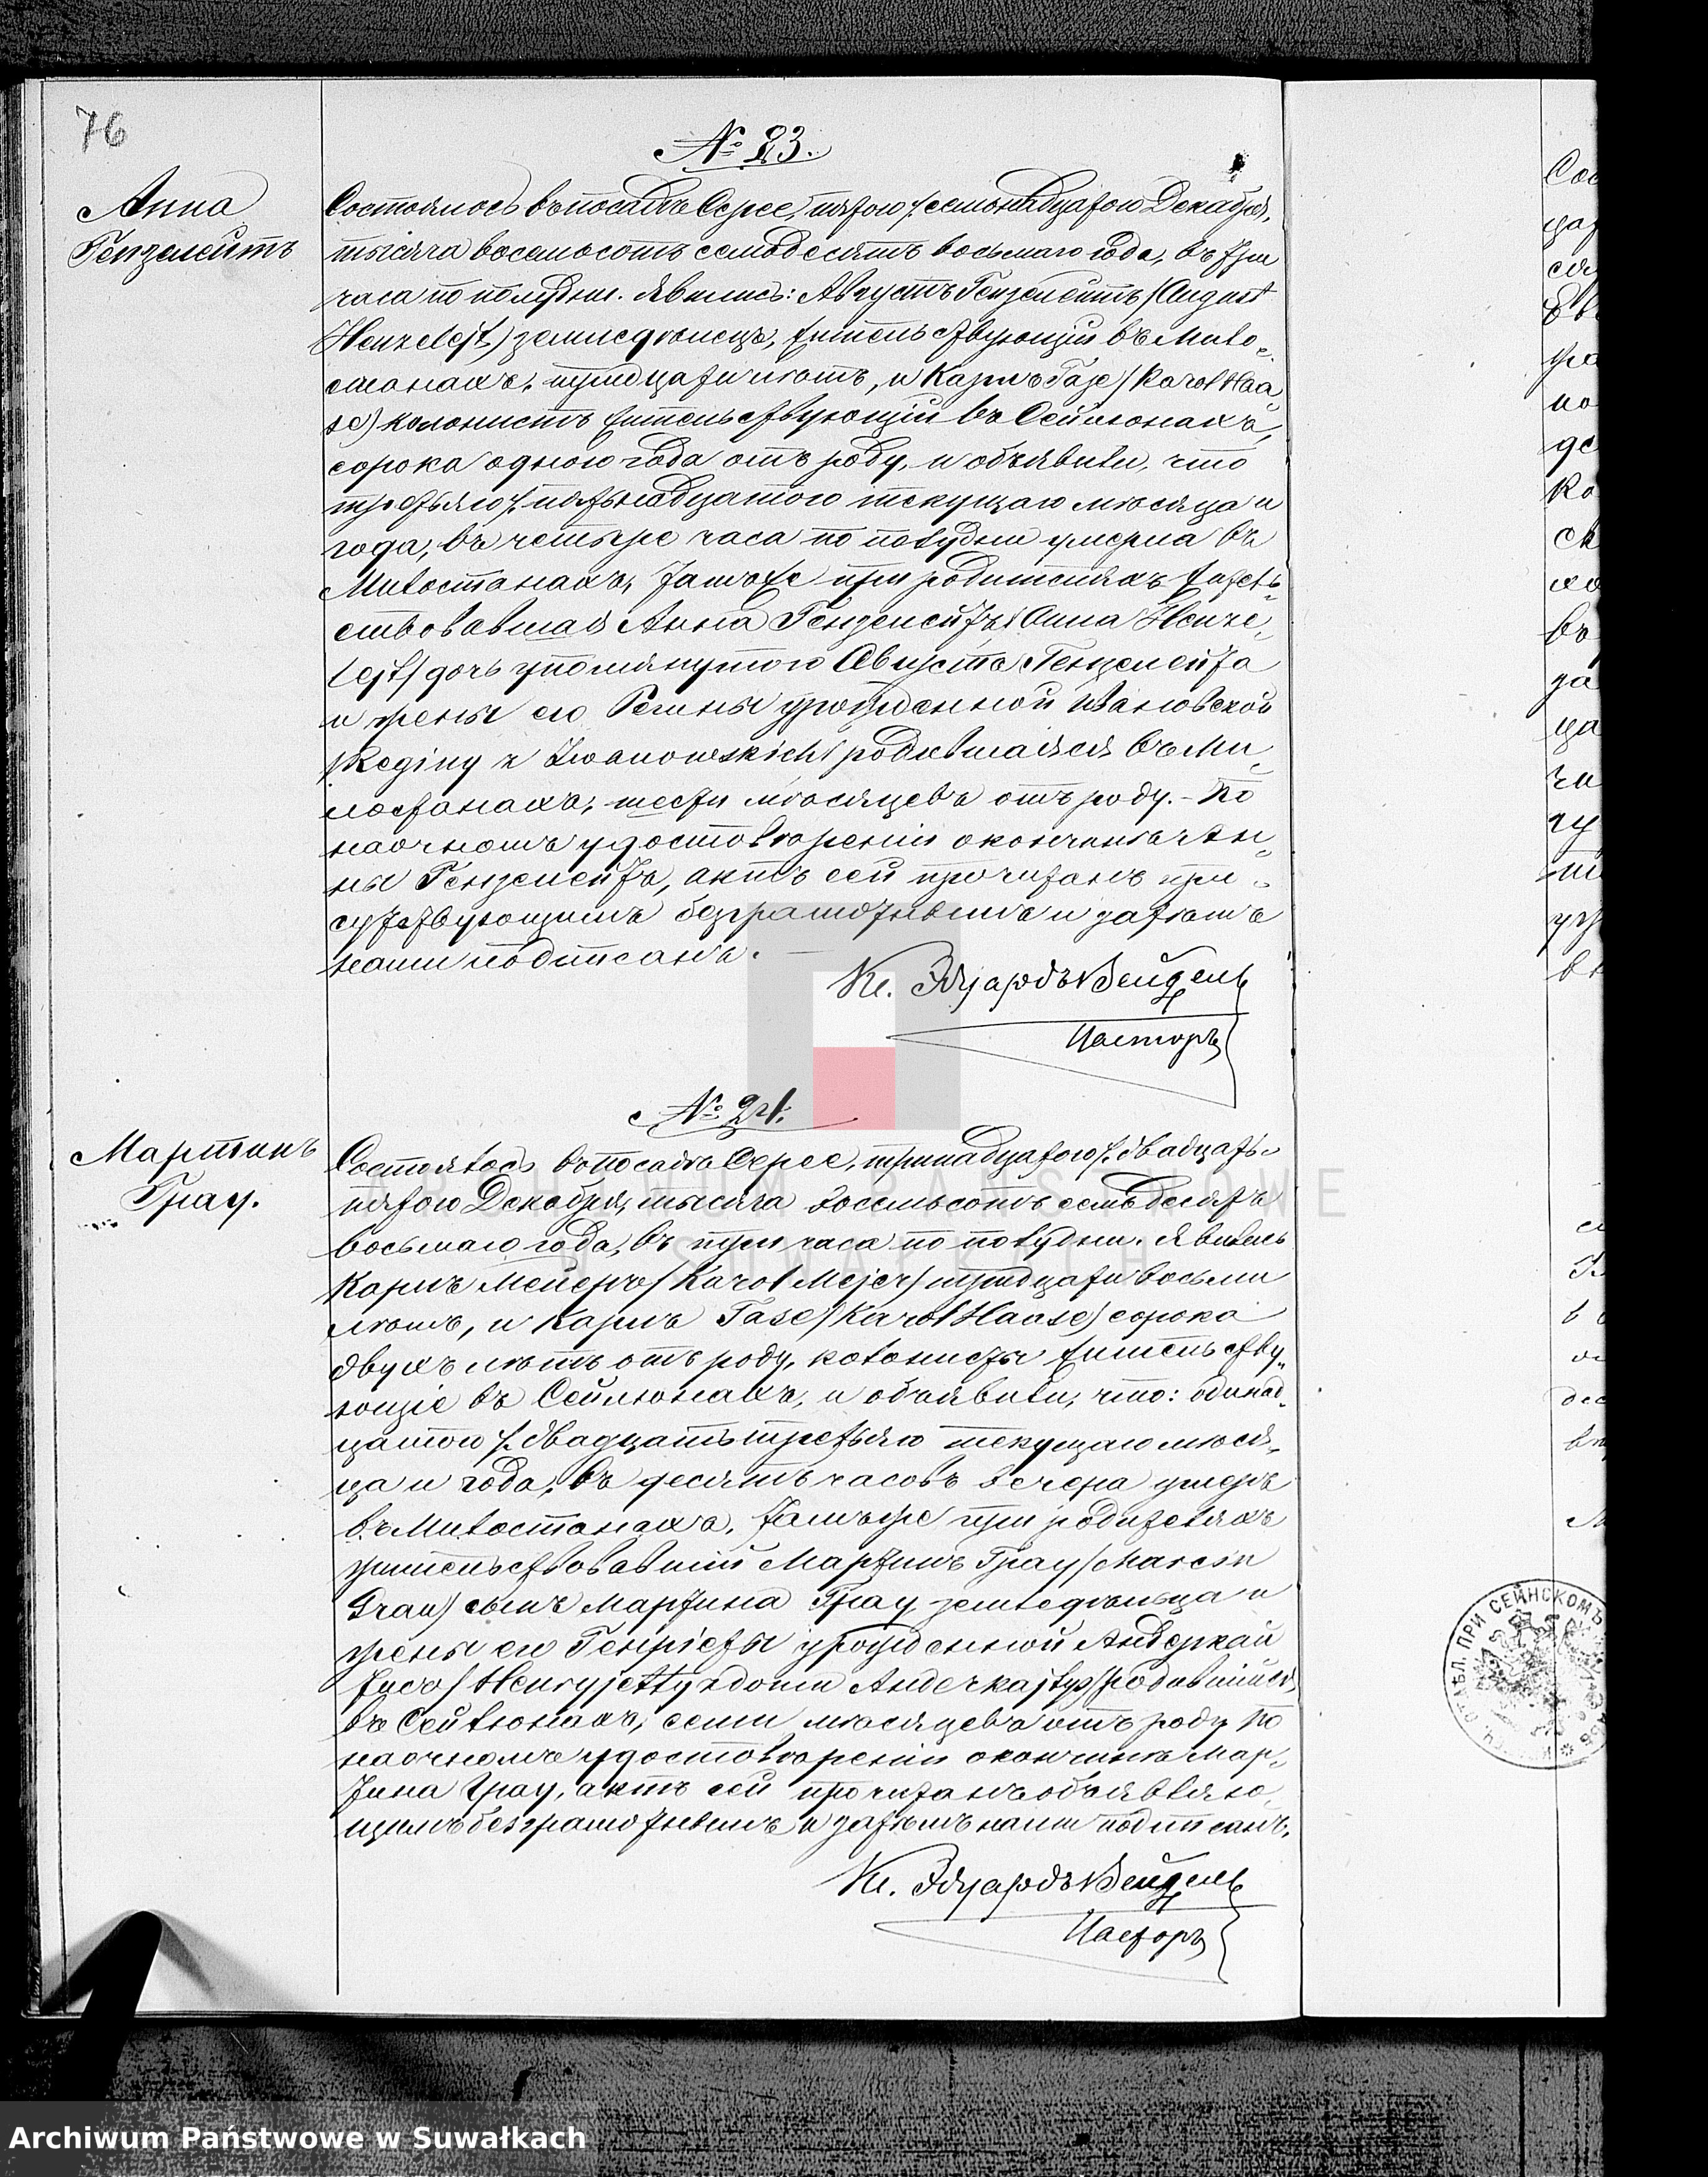 76
№ 23.
Анна
Гензелейтъ
Состоялось въ посадѣ Сереѣ, пятого /. семнадцатого Декабря,
тысяча восемьсотъ семьдесятъ восьмаго года, въ три
часа по полудни. Явились: Августъ Гензелейтъ /August
Henzelejt/ земледѣлецъ, жительствующій въ Мило-
стонахъ, тридцати лѣтъ, и Карлъ Газе /Karol Haa-
se/ колонистъ жительствующій въ Сейлюнахъ,
сорока одного года отъ роду, и объявили, что
третьяго /. пятьнадцатого текущаго мѣсяца и
года, въ четыре часа по полудни умерла въ
Милостанахъ, тамъже при родителяхъ житель-
ствовавшая Анна Гензелейтъ /Anna Henze-
lejt/ дочь упомянутого Августа Гензелейта
и жены его Регины урожденной Ивановской
/Reginy z Iwanowskich/ родившаяся въ Ми-
лостанахъ, шести мѣсяцевъ отъ роду. – По
наочномъ удостовѣреніи о кончинѣ Ан-
ны Гензелейтъ, актъ сей прочитанъ при-
сутствующимъ безграмотнымъ и затѣмъ
нами подписанъ. —
Кс. Эдуардъ Вейдель
Пасторъ
№ 24.
Мартинъ
Грау.
Состоялось въ посадѣ Сереѣ, тринадцатого /. двадцать
пятого Декабря, тысяча восемьсотъ семьдесятъ
восьмаго года, въ три часа по полудни. Явились
Карлъ Мейеръ /Karol Mejer/ тридцати восьми
лѣтъ, и Карлъ Газе /Karol Haase/ сорока
двухъ лѣтъ отъ роду, колонисты жительству-
ющіе въ Сейлюнахъ, и объявили, что: одинад-
цатого /. двадцать третьяго текущаго мѣся-
ца и года, въ десять часовъ вечера умеръ
въ Милостонахъ, тамъже при родителяхъ
жительствовавшій Мартинъ Грау /Marcin
Grau/ сынъ Мартина Грау земледѣльца и
жены его Генріеты урожденной Андеркай-
тысъ /Henryjetty z domu Anderkajtys/ родившійся
въ Сейлюнахъ, семи мѣсяцевъ отъ роду. По
наочномъ удостовѣреніи о кончинѣ Мар-
тина Грау, актъ сей прочитанъ объявляю-
щимъ безграмотнымъ и затѣмъ нами подписанъ.
Кс. Эдуардъ Вейдель
Пасторъ
ОТДѢЛ. ПРИ СЕЙНСКОМЪ
ARCHIWUM PAŃSTWOWE
W SUWAŁKACH
Archiwum Państwowe w Suwałkach